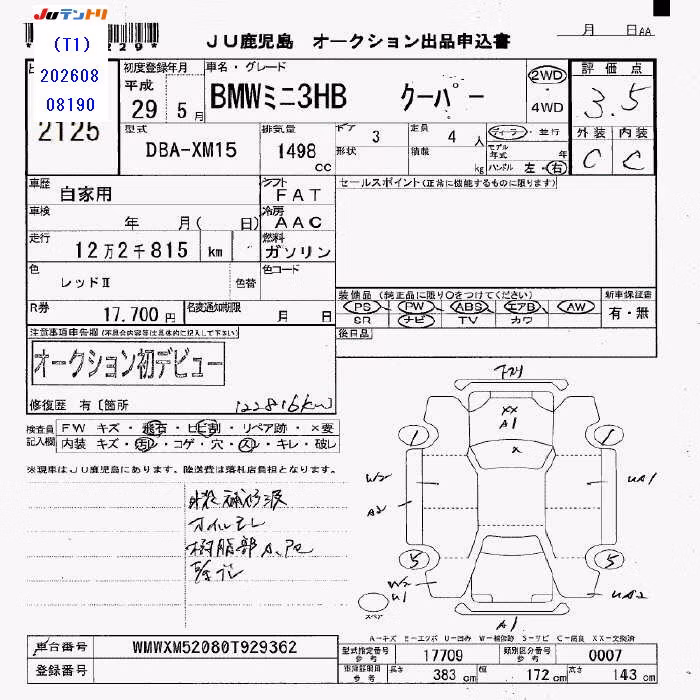 JUテントリ
(T1)
202608
08190
2125
JU鹿児島 オークション出品申込書
月 日
AA
初度登録年月
平成
29年 5月
車名・グレード
BMWミニ3HB クーパー
2WD
・4WD
評価点
3.5
外装 内装
C C
型式
DBA-XM15
排気量
1498
cc
ドア 3
形状
定員 4 人
積載 kg
ディーラ・並行
モデル年式 年
ハンドル 左・右
車歴
自家用
シフト
FAT
セールスポイント(正常に機能するものに限ります)
車検
年 月( 日)
冷房
AAC
走行
12万2千815 km
燃料
ガソリン
色
レッドⅡ
色替
色コード
R券
17.700円
名変通知期限
月 日
装備品(純正品に限り○をつけてください)
PS・PW・ABS・エアB・AW
SR ナビ TV カワ
新車保証書
有・無
後日品
注意事項申告欄(不具合内容等は具体的に記入して下さい)
オークション初デビュー
修復歴 有〔箇所
122816km〕
検査員記入欄
FW キズ・飛石・ヒビ割・リペア跡・×要
内装 キズ・汚レ・コゲ・穴・スレ・キレ・破レ
※現車はJU鹿児島にあります。陸送費は落札店負担となります。
外装補修波
オイルモレ
樹脂部
XX
A1
X
1
1
W2
A2
UA1
5
5
W2
U1
UA2
スペア
A1
A-キズ E-エクボ U-凹み W-補修跡 S-サビ C-腐食 XX-交換済
車台番号
WMWXM52080T929362
登録番号
型式指定番号
参考
17709
類別区分番号
参考
0007
車検証記載
参考
長さ 383 cm
幅 172 cm
高さ 143 cm